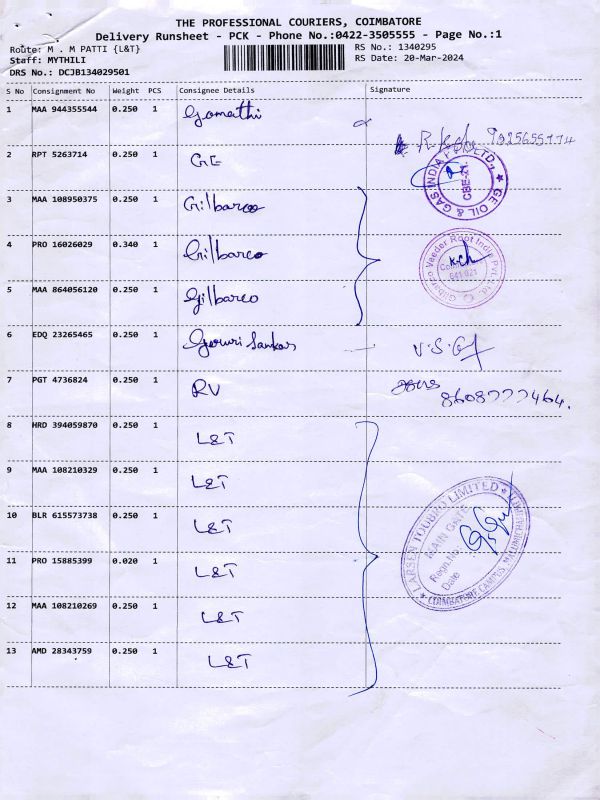 THE PROFESSIONAL COURIERS, COIMBATORE
Delivery Runsheet - PCK - Phone No.:0422-3505555 - Page No.:1
Route: M . M PATTI {L&T} RS No.: 1340295
Staff: MYTHILI RS Date: 20-Mar-2024
DRS No.: DCJB134029501
S No Consignment No Weight PCS Consignee Details Signature
1 MAA 944355544 0.250 1 Gomathi
2 RPT 5263714 0.250 1 GE
GE OIL & GAS INDIA LTD.
CBE-21.
3 MAA 108950375 0.250 1 Gilbarco
4 PRO 16026029 0.340 1 Gilbarco
Gilbarco Veeder Root India Pvt. Ltd.
641 021
5 MAA 864056120 0.250 1 Gilbarco
6 EDQ 23265465 0.250 1 Gowri Sankar
7 PGT 4736824 0.250 1 RV
8608777464.
8 HRD 394059870 0.250 1 L&T
9 MAA 108210329 0.250 1 L&T
10 BLR 615573738 0.250 1 L&T
LARSEN TOUBRO LIMITED
MAIN GATE
Regn.No.
Date
COIMBATORE CAMPUS,
11 PRO 15885399 0.020 1 L&T
12 MAA 108210269 0.250 1 L&T
13 AMD 28343759 0.250 1 L&T